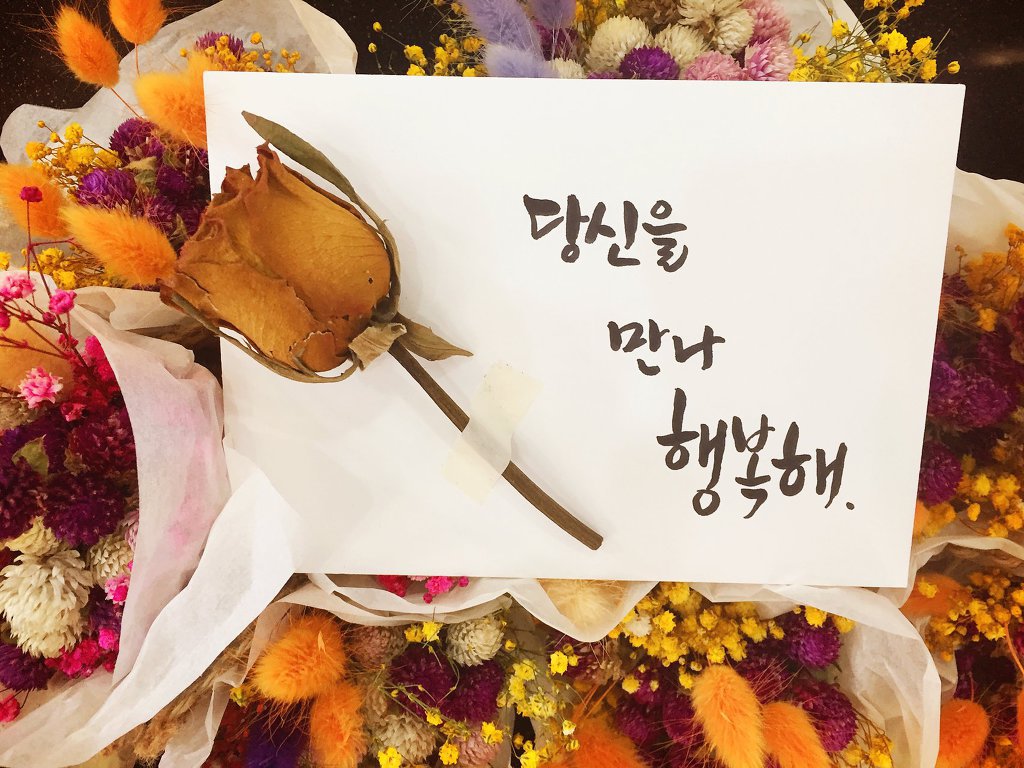 당신을
만나
행복해.